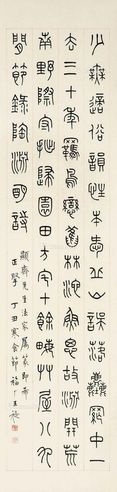 少無適俗韻性本愛丘山誤落塵網中一
去三十年羈鳥戀舊林池魚思故淵開荒
南野際守拙歸園田方宅十餘畝草屋八九
間節錄陶淵明詩
齋先生法家屬篆即希
正擘丁丑寒食節福厂王禔